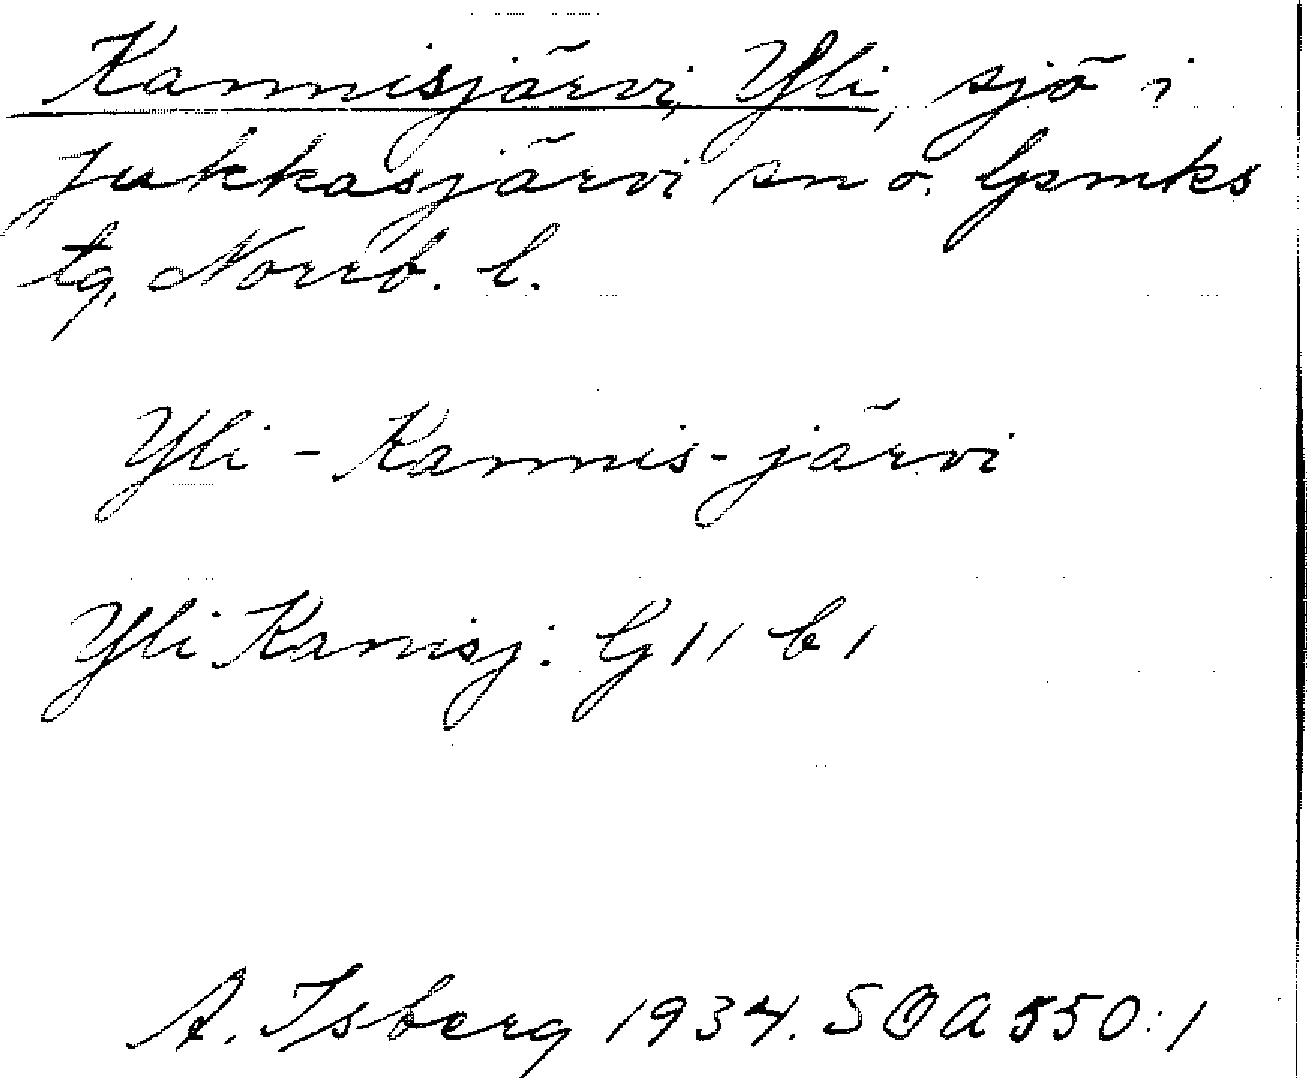 Kannisjärvi, Yli, sjö i
Jukkasjärvi sn o. lpsmks
tg, Norrb. l.
Yli - Kannis-järvi
Yli Kanisj: G 11 b 1
A. Isberg 1934. SOA 550:1